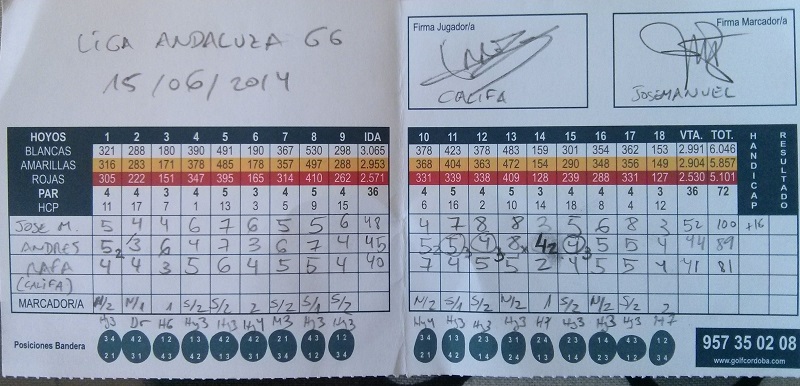 LIGA ANDALUZA GG
15/06/2014
Firma Jugador/a
CALIFA
Firma Marcador/a
JOSEMANUEL
HOYOS 1 2 3 4 5 6 7 8 9 IDA 10 11 12 13 14 15 16 17 18 VTA. TOT. HANDICAP RESULTADO
BLANCAS 321 288 180 390 491 190 367 530 298 3.065 378 423 378 483 159 301 354 362 153 2.991 6.046
AMARILLAS 316 283 171 378 485 178 357 497 288 2.953 368 404 363 472 154 290 348 356 149 2.904 5.857
ROJAS 305 222 151 347 395 165 314 410 262 2.571 331 339 338 409 128 239 288 331 127 2.530 5.101
PAR 4 4 3 4 5 3 4 5 4 36 4 4 4 5 3 4 4 4 36 72
HCP 11 17 7 1 13 3 5 9 15 6 16 2 10 14 18 8 4 12
JOSE M. 5 4 4 6 7 6 5 5 6 48 4 7 8 8 3 5 6 8 3 52 100 +16
ANDRES 5 3 6 4 7 3 6 7 4 45 5 5 4 8 4 4 5 5 4 44 89
RAFA 4 4 3 5 6 4 5 5 4 40 7 4 5 5 2 4 5 5 4 41 81
(CALIFA)
MARCADOR/A
Posiciones Bandera
957 35 02 08
www.golfcordoba.com